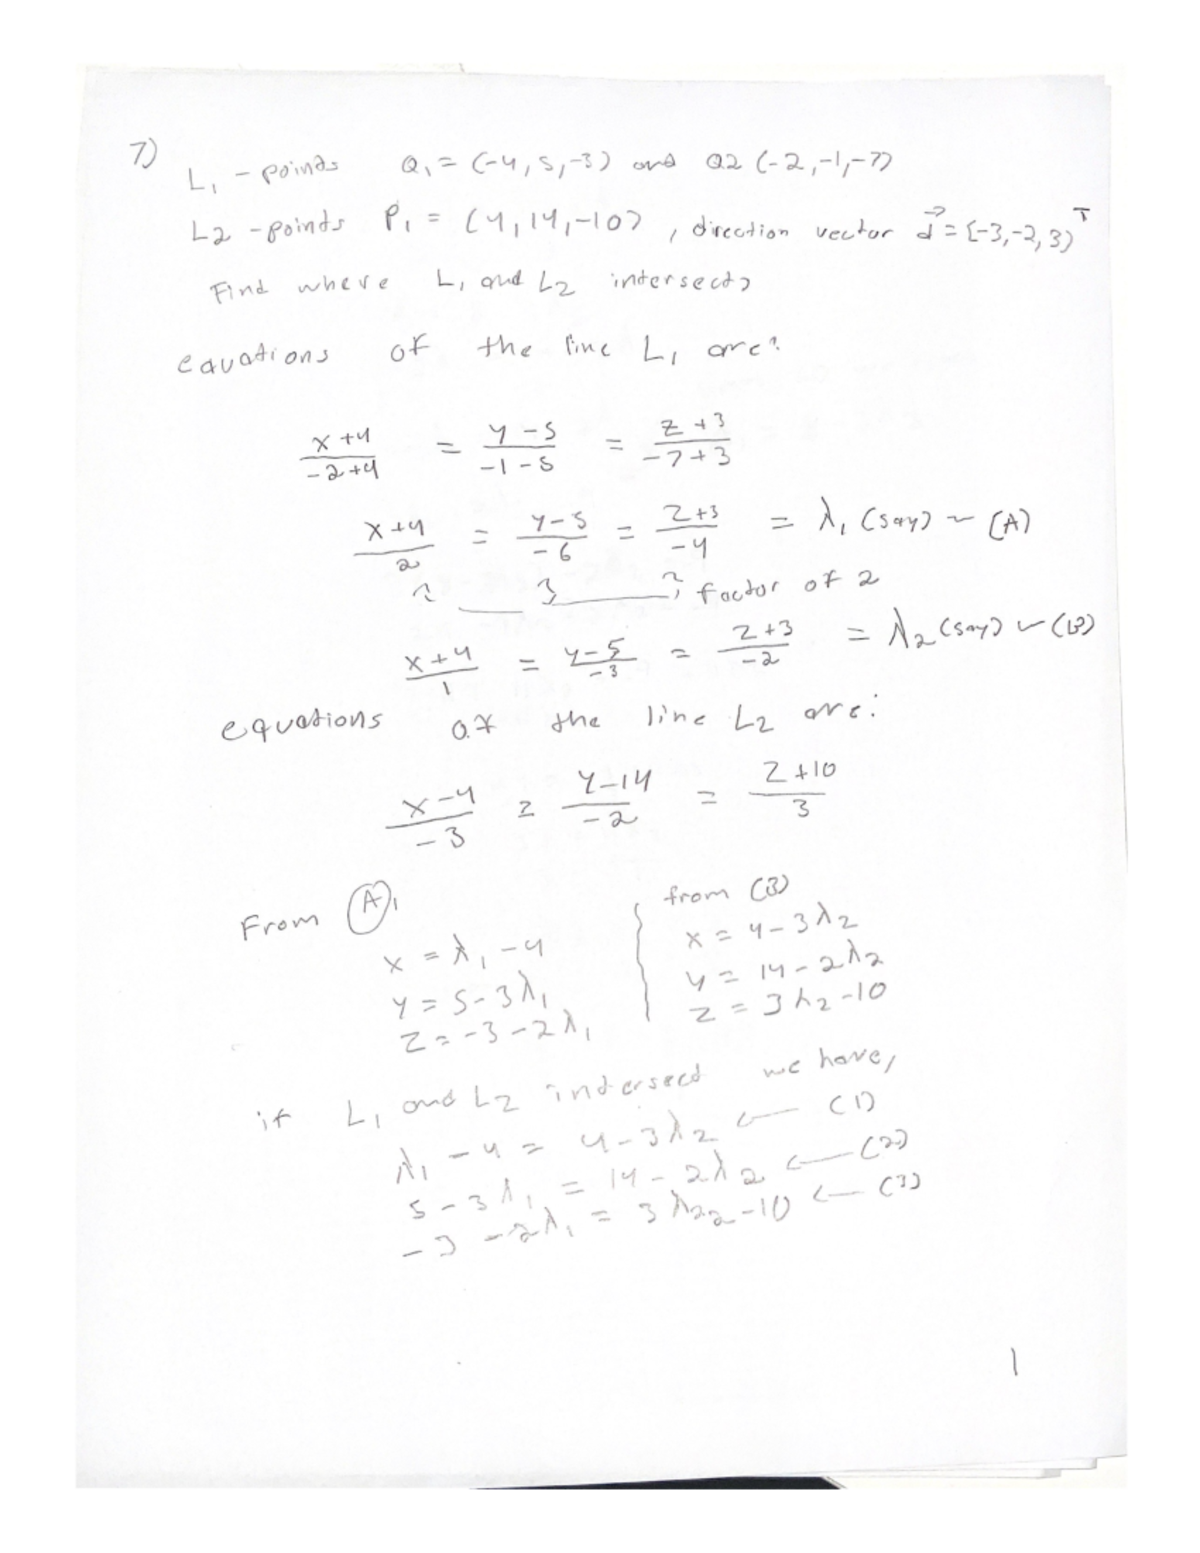 7)
L₁ - points Q₁ = (-4, 5, -3) and Q2 (-2, -1, -7)
L2 - points P₁ = (4, 14, -10), direction vector d⃗ = [-3, -2, 3)ᵀ
Find where L₁ and L₂ intersects
equations of the line L₁ are:
(x+4)/(-2+4) = (y-5)/(-1-5) = (z+3)/(-7+3)
(x+4)/2 = (y-5)/-6 = (z+3)/-4 = λ₁ (say) ~ (A)
factor of 2
(x+4)/1 = (y-5)/-3 = (z+3)/-2 = λ₂ (say) ~ (B)
equations of the line L₂ are:
(x-4)/-3 = (y-14)/-2 = (z+10)/3
From (A),
x = λ₁ - 4
y = 5 - 3λ₁
z = -3 - 2λ₁
from (B)
x = 4 - 3λ₂
y = 14 - 2λ₂
z = 3λ₂ - 10
if L₁ and L₂ intersect we have,
λ₁ - 4 = 4 - 3λ₂ ← (1)
5 - 3λ₁ = 14 - 2λ₂ ← (2)
-3 - 2λ₁ = 3λ₂₂ - 10 ← (3)
1